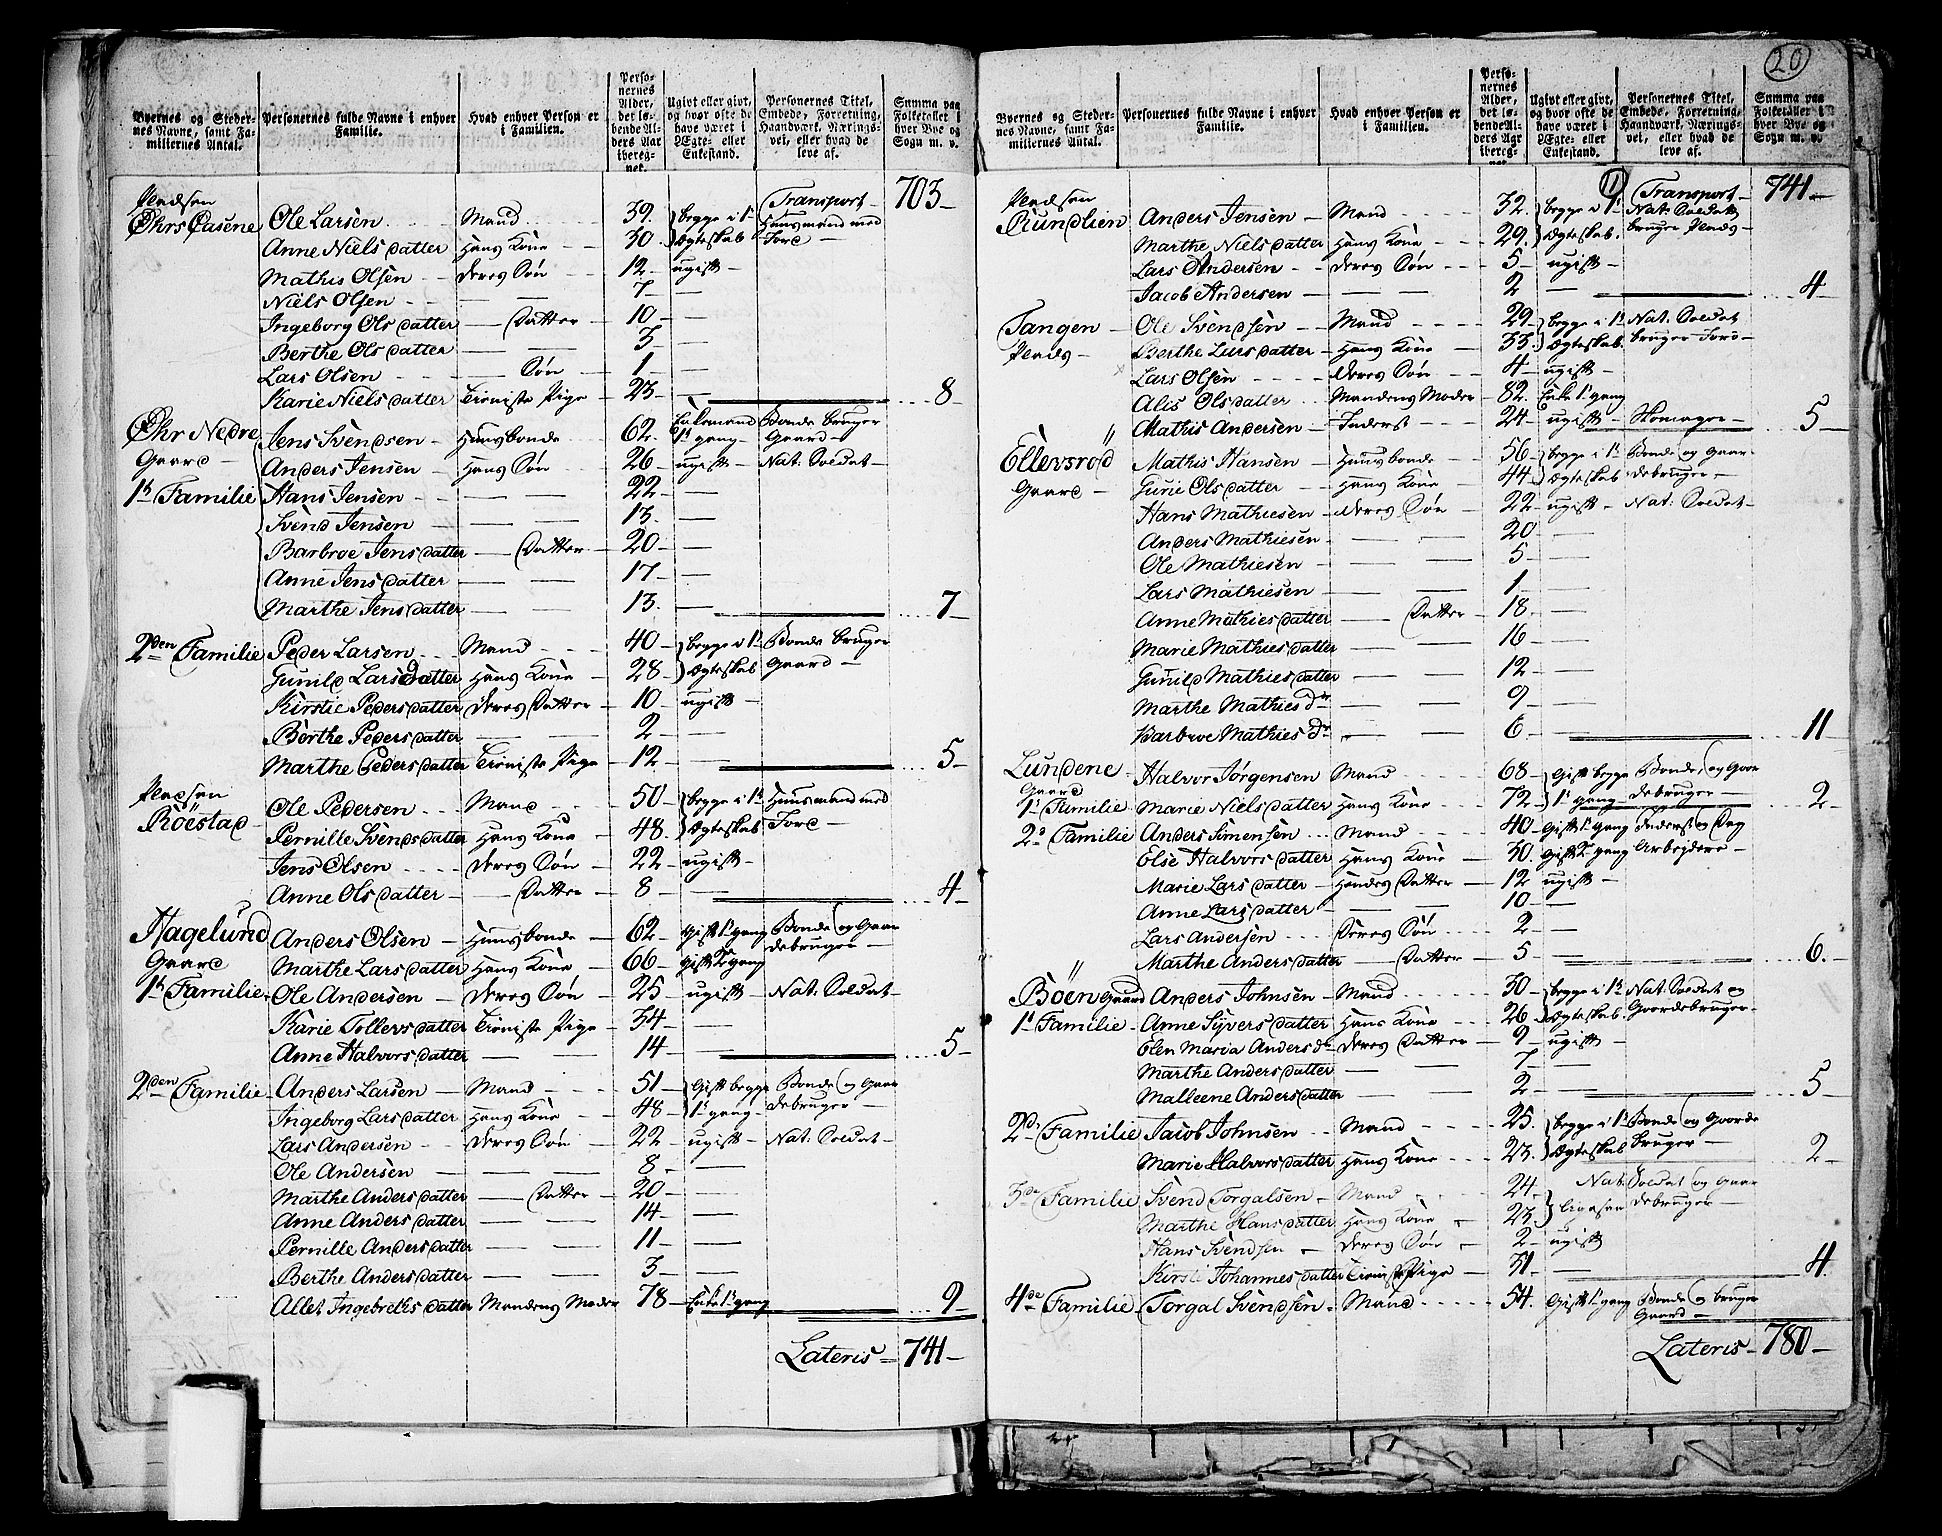 20
Byernes og Stedernes Navne, samt Familiernes Antal.
Personernes fulde Navne i enhver Familie.
Hvad enhver Person er i Familien.
Personernes Alder, det løbende Alders Aar iberegnet.
Ugivt eller givt, og hvor ofte de have været i Ægte- eller Enkestand.
Personernes Titel, Embede, Forretning, Haandværk, Næringsvei, eller hvad de leve af.
Summa paa Folketallet i hver Bye og Sogn m. v.
Transport 703
Pladsen Øhrs Ole Larsen Mand 39 begge i 1t Huusmand med
Anne Nielsdatter Hans Kone 30 Ægteskab Jord
Mathis Olsen Deres Søn 12 ugift
Niels Olsen — — 7 —
Ingeborg Olsdatter — Datter 10 —
Berthe Olsdatter — — 3 —
Lars Olsen — Søn 1 —
Karie Nielsdatter Tieniste Pige 23 — 8
Øhr Nedre Jens Svendsen Huusbonde 62 Enkemand Bonde bruger
Gaard 1t gang Gaard
Anders Jensen Hans Søn 26 ugift Nat: Soldat
1t Familie Hans Jensen — — 22 —
Svend Jensen — — 13 —
Barbroe Jensdatter — Datter 20 —
Anne Jensdatter — — 17 —
Marthe Jensdatter — — 13 — 7
2den Familie Peder Larsen Mand 40 begge i 1t Bonde bruger
Gunild Larsdatter Hans Kone 28 Ægteskab Gaard
Kirstie Pedersdatter Deres Datter 10 ugift
Berthe Pedersdatter — — 2 —
Marthe Pedersdatter Tieniste Pige 12 — 5
Pladsen Röestad Ole Pedersen Mand 50 begge i 1t Huusmand med
Pernille Svendsdatter Hans Kone 48 Ægteskab Jord
Jens Olsen Deres Søn 22 ugift
Anne Olsdatter — Datter 8 — 4
Hagelund Anders Olsen Huusbonde 62 Gift 1t gang Bonde og Gaar
Gaard Marthe Larsdatter Hans Kone 66 Gift 2 gang debruger
1t Familie Ole Andersen Deres Søn 25 ugift Nat: Soldat
Karie Tollevsdatter Tieniste Pige 34 —
Anne Halvorsdatter — — 14 — 5
2den Familie Anders Larsen Mand 51 Gift begge Bonde og Gaar
Ingeborg Larsdatter Hans Kone 48 1t gang debruger
Lars Andersen Deres Søn 22 ugift Nat: Soldat
Ole Andersen — — 8 —
Marthe Andersdatter — Datter 20 —
Anne Andersdatter — — 14 —
Pernille Andersdatter — — 11 —
Berthe Andersdatter — — 3 —
Allet Ingebretsdatter Mandens Moder 78 Enke 1t gang 9
Lateris 741
Byernes og Stedernes Navne, samt Familiernes Antal.
Personernes fulde Navne i enhver Familie.
Hvad enhver Person er i Familien.
Personernes Alder, det løbende Alders Aar iberegnet.
Ugivt eller givt, og hvor ofte de have været i Ægte- eller Enkestand.
Personernes Titel, Embede, Forretning, Haandværk, Næringsvei, eller hvad de leve af.
Summa paa Folketallet i hver Bye og Sogn m. v.
Transport 741
Pladsen Rundlien Anders Jensen Mand 32 begge i 1t Nat: Soldat
Marthe Nielsdatter Hans Kone 29 Ægteskab bruger Plads
Lars Andersen Deres Søn 5 ugift
Jacob Andersen — — 2 — 4
Tangen Ole Svendsen Mand 29 begge i 1t Nat: Soldat
Plads Berthe Larsdatter Hans Kone 33 Ægteskab bruger Jord
Lars Olsen Deres Søn 4 ugift
Alis Olsdatter Mandens Moder 82 Enke 1t gang
Mathis Andersen Inderst 24 ugift Skomager 5
Ellevsröd Mathis Hansen Huusbonde 56 begge i 1t Bonde og Gaar
Gaard Gurie Olsdatter Hans Kone 44 Ægteskab debruger
Hans Mathiesen Deres Søn 22 ugift Nat: Soldat
Anders Mathiesen — — 20 —
Ole Mathiesen — — 5 —
Lars Mathiesen — — 1 —
Anne Mathiesdatter — Datter 18 —
Marie Mathiesdatter — — 16 —
Gunild Mathiesdatter — — 12 —
Marthe Mathiesdr — — 9 —
Barbroe Mathiesdr — — 6 — 11
Lundene Halvor Jørgensen Mand 68 Gift begge Bonde og Gaar
Gaard
1t Familie Marie Nielsdatter Hans Kone 72 1t gang debruger 2
2d Familie Anders Simensen Mand 40 Gift 1t gang Inderst og Dag
Else Halvorsdatter Hans Kone 30 Gift 2 gang Arbejdere
Marie Larsdatter Hendes Datter 12 ugift
Anne Larsdatter — — 10 —
Lars Andersen Deres Søn 2 —
Marthe Andersdatter — Datter 5 — 6
Böen Gaard Anders Johnsen Mand 30 begge i 1t Nat: Soldat og
1t Familie Anne Syversdatter Hans Kone 26 Ægteskab Gaardebruger
Elen Maria Andersdr Deres Datter 9 ugift
Marthe Andersdatter — — 7 —
Malleene Andersdatter — — 2 — 5
2d Familie Jacob Johnsen Mand 25 begge i 1t Bonde og Gaarde
Marie Halvorsdatter Hans Kone 23 Ægteskab bruger 2
3de Familie Svend Torgalsen Mand 24 Nat: Soldat og Gaar
Marthe Hansdatter Hans Kone 23 ligesaa debruger
Hans Svendsen Deres Søn 2 ugift
Kirsti Johannesdatter Tieniste Pige 31 — 4
4de Familie Torgal Svendsen Mand 54 Gift 1t gang Bonde og bruger
Gaard
Lateris 780